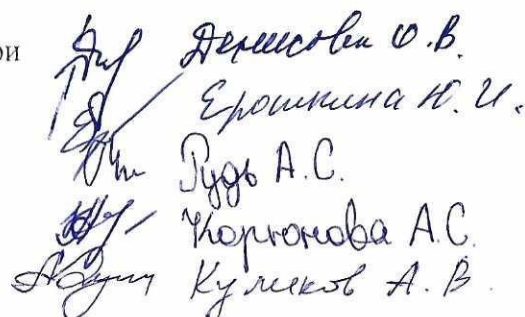 ри Денисова О.В.
Ерошкина Н.И.
Гудь А.С.
Корюнова А.С.
Куликов А.В.